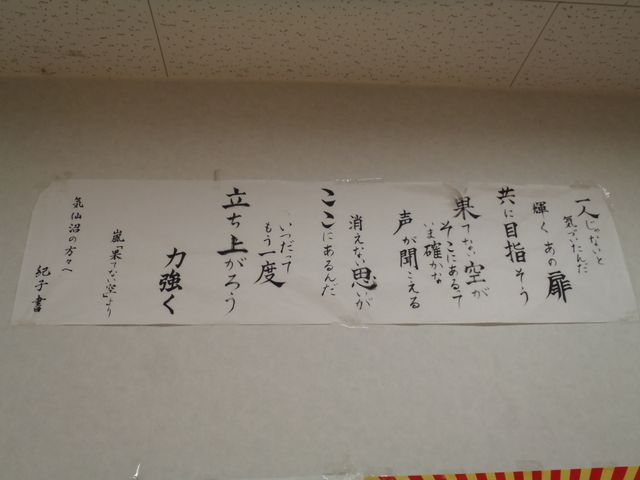 一人じゃないと
気づいたんだ
輝く あの扉
共に目指そう
果てない空が
そこにあるって
いま確かな
声が聞こえる
ここにあるんだ
消えない思いが
いつだって
もう一度
立ち上がろう
力強く
嵐「果てない空」より
気仙沼の方々へ
紀子 書